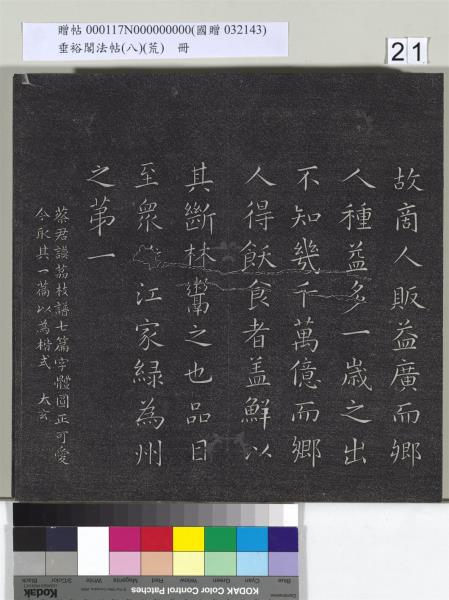 贈帖 000117N000000000(國贈 032143)
垂裕閣法帖(八)(荒) 冊
21
故商人販益廣而鄉
人種益多一歲之出
不知幾千萬億而鄉
人得飫食者盖鮮以
其斷林鬻之也品目
至眾 江家綠為州
之苐一
蔡君謨茘枝譜七篇字體圓正可愛
今取其一篇以為楷式 大玄
Blue Cyan Green Yellow Red Magenta White 3/Color Black
Kodak KODAK Color Control Patches